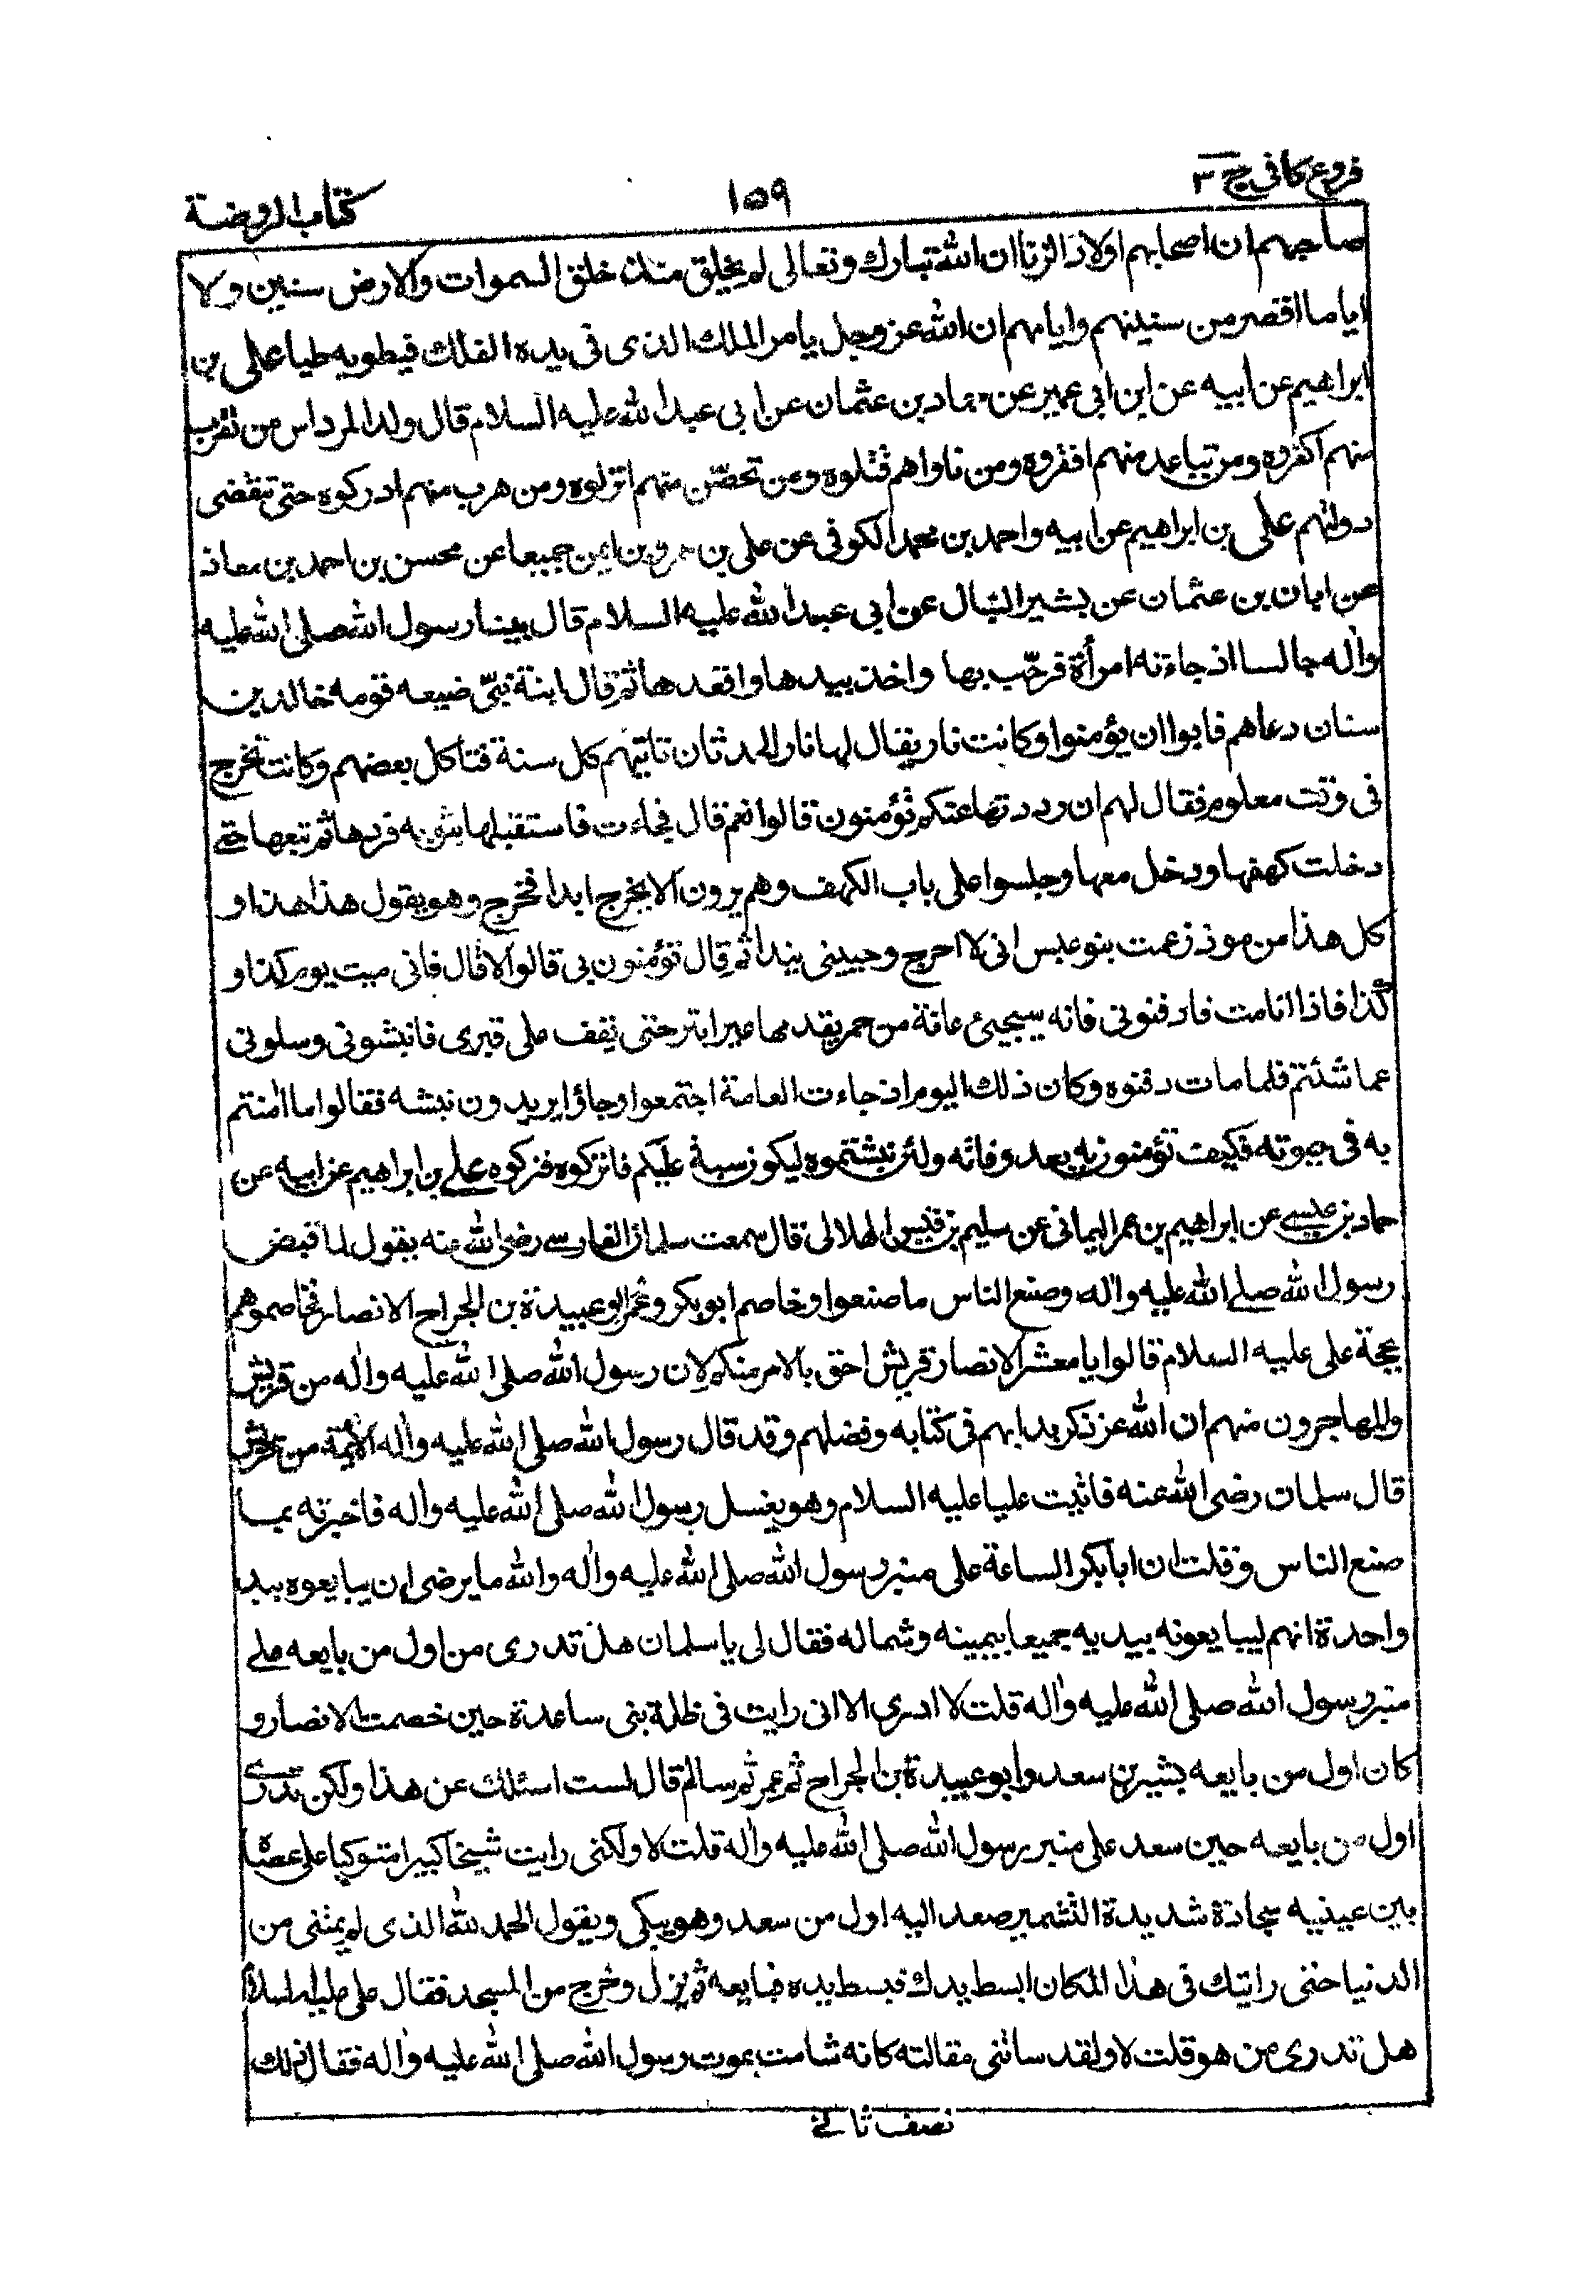 فروع كافى ج ٣
١٥٩
كتاب الروضة
صاحبهم ان اصحابهم اولاد الزنا ان الله تبارك وتعالى لم يخلق منذ خلق السموات والارض سنين ولا
اياما اقصر من سنينهم وايامهم ان الله عز وجل يامر الملك الذى فى يده الفلك فيطويه طيا على بن
ابراهيم عن ابيه عن ابن ابى عمير عن حماد بن عثمان عن ابى عبد الله عليه السلام قال ولد المرداس من تقرب
منهم اكفروه ومن تباعد منهم افقروه ومن ناواهم قتلوه ومن تحصّن منهم انزلوه ومن هرب منهم ادركوه حتى تنقضى
دولتهم على بن ابراهيم عن ابيه واحمد بن محمد الكوفى عن على بن عمرو بن ايمن جميعا عن محسن بن احمد بن معاذ
عن ابان بن عثمان عن بشير النبال عن ابى عبد الله عليه السلام قال بينا رسول الله صلى الله عليه
واله جالسا اذ جاءته امرأة فرحّب بها واخذ بيدها واقعدها ثم قال ابنة نبىّ ضيعه قومه خالد بن
سنان دعاهم فابوا ان يؤمنوا وكانت نار يقال لها نار الحدثان تاتيهم كل سنة فتاكل بعضهم وكانت تخرج
فى وقت معلوم فقال لهم ان رددتها عنكم تؤمنون قالوا نعم قال فجاءت فاستقبلها بثوبه فردها ثم تبعها حتى
دخلت كهفها ودخل معها وجلسوا على باب الكهف وهم يرون الا يخرج ابدا فخرج وهو يقول هذا هذا و
كل هذا من موذ زعمت بنو عبس انى لا اخرج وجبينى يندا ثم قال تؤمنون بى قالوا لا قال فانى ميت يوم كذا و
كذا فاذا انا مت فادفنونى فانه سيجئ عانة من حمر يقدمها عير ابتر حتى يقف على قبرى فانبشونى وسلونى
عما شئتم فلما مات دفنوه وكان ذلك اليوم اذ جاءت العامة اجتمعوا وجاؤا يريدون نبشه فقالوا ما امنتم
به فى حيوته فكيف تؤمنون به بعد وفاته ولئن نبشتموه ليكون سبة عليكم فاتركوه فتركوه على بن ابراهيم عن ابيه عن
حماد بن عيسى عن ابراهيم بن عمر اليمانى عن سليم بن قيس الهلالى قال سمعت سلمان الفارسى رضى الله عنه يقول لما قبض
رسول الله صلى الله عليه واله وصنع الناس ما صنعوا وخاصم ابو بكر وعمر وابو عبيدة بن الجراح الانصار فخاصموهم
بحجة على عليه السلام قالوا يا معشر الانصار قريش احق بالامر منكم لان رسول الله صلى الله عليه واله من قريش
والمهاجرون منهم ان الله عز ذكره بدا بهم فى كتابه وفضلهم وقد قال رسول الله صلى الله عليه واله الائمة من قريش
قال سلمان رضى الله عنه فاتيت عليا عليه السلام وهو يغسل رسول الله صلى الله عليه واله فاخبرته بما
صنع الناس وقلت ان ابا بكر الساعة على منبر رسول الله صلى الله عليه واله والله ما يرضى ان يبايعوه بيد
واحدة انهم ليبايعونه بيديه جميعا بيمينه وشماله فقال لى يا سلمان هل تدرى من اول من بايعه على
منبر رسول الله صلى الله عليه واله قلت لا ادرى الا انى رايت فى ظلة بنى ساعدة حين خصمت الانصار و
كان اول من بايعه بشير بن سعد وابو عبيدة بن الجراح ثم عمر ثم سالم قال لست اسئلك عن هذا ولكن تدرى
اول من بايعه حين سعد على منبر رسول الله صلى الله عليه واله قلت لا ولكنى رايت شيخا كبيرا متوكيا على عصا
بين عينيه سجادة شديدة التشمير صعد اليه اول من سعد وهو يبكى ويقول الحمد لله الذى لم يمتنى من
الدنيا حتى رايتك فى هذا المكان ابسط يدك فبسط يده فبايعه ثم نزل وخرج من المسجد فقال على عليه السلام
هل تدرى من هو قلت لا ولقد سائتنى مقالته كانه شامت بموت رسول الله صلى الله عليه واله فقال ذلك
نصف ثانى